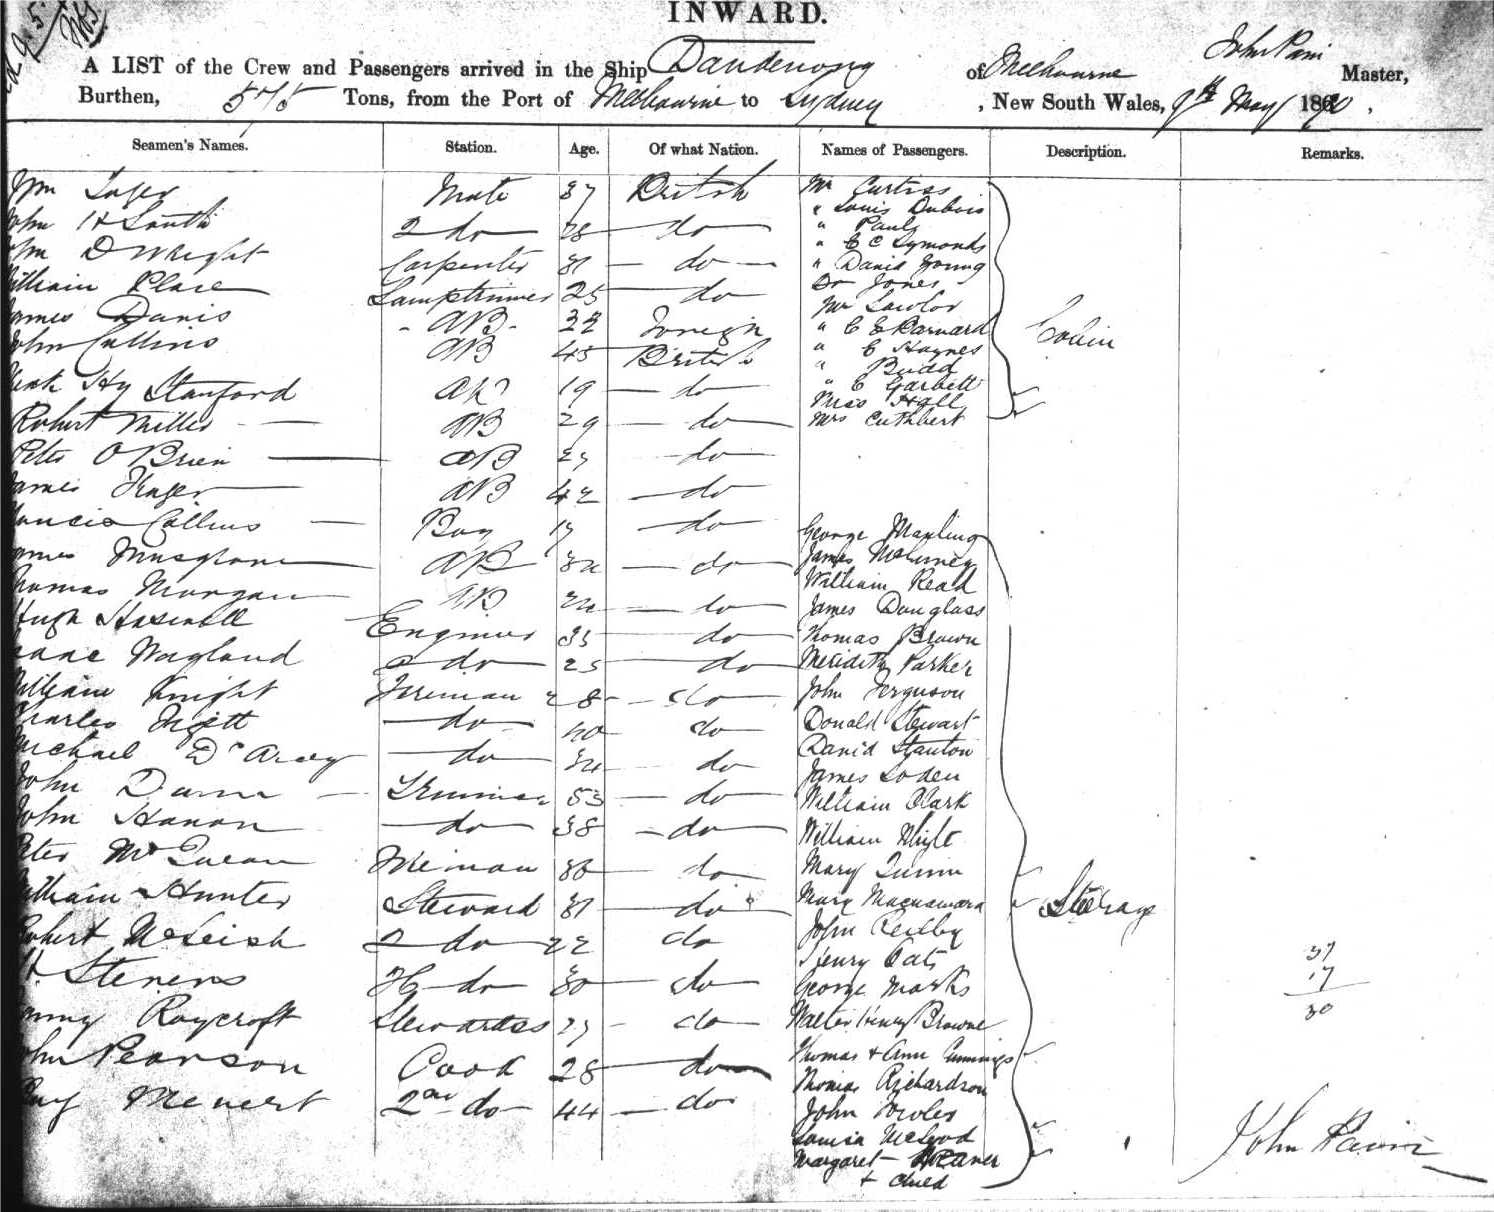 INWARD.
A LIST of the Crew and Passengers arrived in the Ship Dandenong of Melbourne John Master,
Burthen, 575 Tons, from the Port of Melbourne to Sydney , New South Wales, 9th May 1870 .
Seamen's Names. Station. Age. Of what Nation. Names of Passengers. Description. Remarks.
Mate 37 British Mr Curtiss
John H South 2 do 28 do " Louis Dubois
" Pauls
John D Wright Carpenter 31 do " C C Symonds
" David Young
William Place Lamptrimer 25 do Dr Jones
James Davis AB Foreign Mr Lawlor
" C E Barnard
John Collins AB 45 British " C Haynes Cabin
" Budd
Hy Stanford AB 19 do " C Garbett
Miss Hall
Robert Miller AB 29 do Mrs Cuthbert
Peter O Brien AB do
James AB 42 do
Francis Collins Boy 17 do George Mayling
James Musgrave AB do James
William Read
Thomas Morgan AB do James Douglass
Hugh Engineer 35 do Thomas Brown
Isaac Wagland 2 do 25 do Meridith Parker
William Knight Fireman 28 do John Ferguson
Charles do 40 do Donald Stewart
Michael D'Arcy do do David Stanton
James Loden
John Trimmer 53 do William Clark
John Hanan do 38 do William White
Peter McQuean Fireman do Mary Quinn
William Hunter Steward 31 do Mary Macnamara Steerage
Robert McLeish 2 do 22 do John Reilby
Henry Oats
H. Stevens do 30 do George Marks
37
17
30
Roycroft Stewardess do Walter Henry Browne
John Pearson Cook 28 do Thomas & Ann Cummings
Thomas Richardson
Menert 2nd do 44 do John Fowles
Louisa McLeod
Margaret
& Child
John